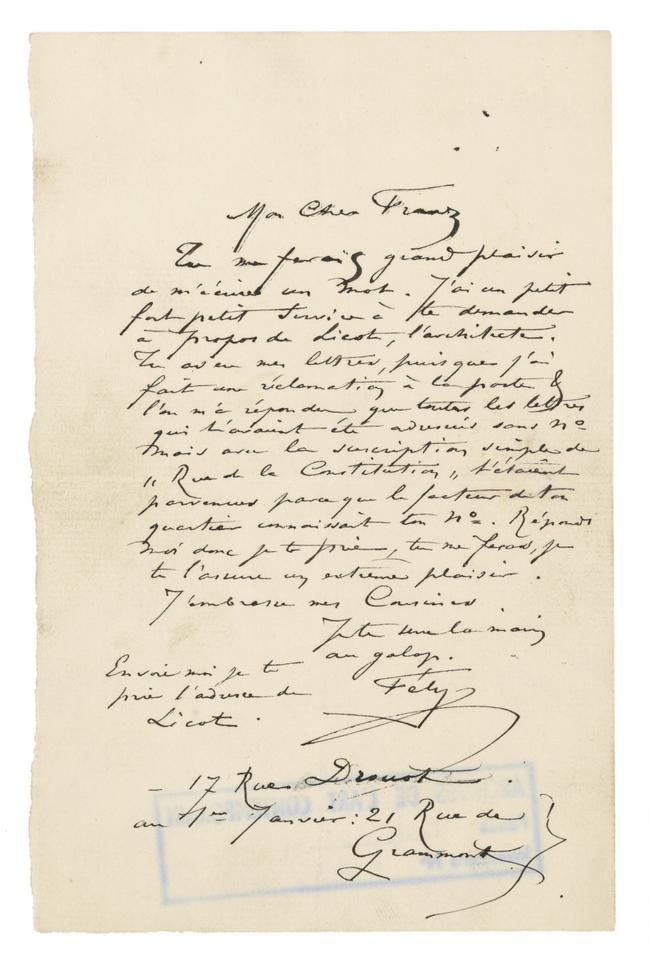 Mon Cher Franz
Tu me ferais grand plaisir
de m'écrire un mot. J'ai un petit
fort petit service à te demander
à propos de Licot, l'architecte.
Tu as eu mes lettres, puisque j'ai
fait une réclamation à la poste &
l'on m'a répondu que toutes les lettres
qui t'avaient été adressés sans Nº
mais avec la suscription simple de
"Rue de la Constitution" t'étaient
parvenues parce que le facteur de ton
quartier connaissait ton Nº. Réponds
moi donc je te prie, tu me feras, je
te l'assure un extrême plaisir.
J'embrasse mes Cousines
Je te serre la main
au galop.
Fély
Envoie moi je te
prie l'adresse de
Licot.
– 17 Rue Drouot.
au 1er Janvier : 21 Rue de
Grammont
ARCHIVES DE L'ART CONTEMPORAIN